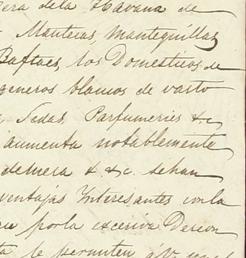 era dela Havana de
Mantecas, mantequillas
los Domesticos de
generos blancos de vasto
Sedas, Parfumeris &c
aumenta notablemente
&. &c. sehan
ventajas Interesantes conla
porla exceciva
se permiten á V.